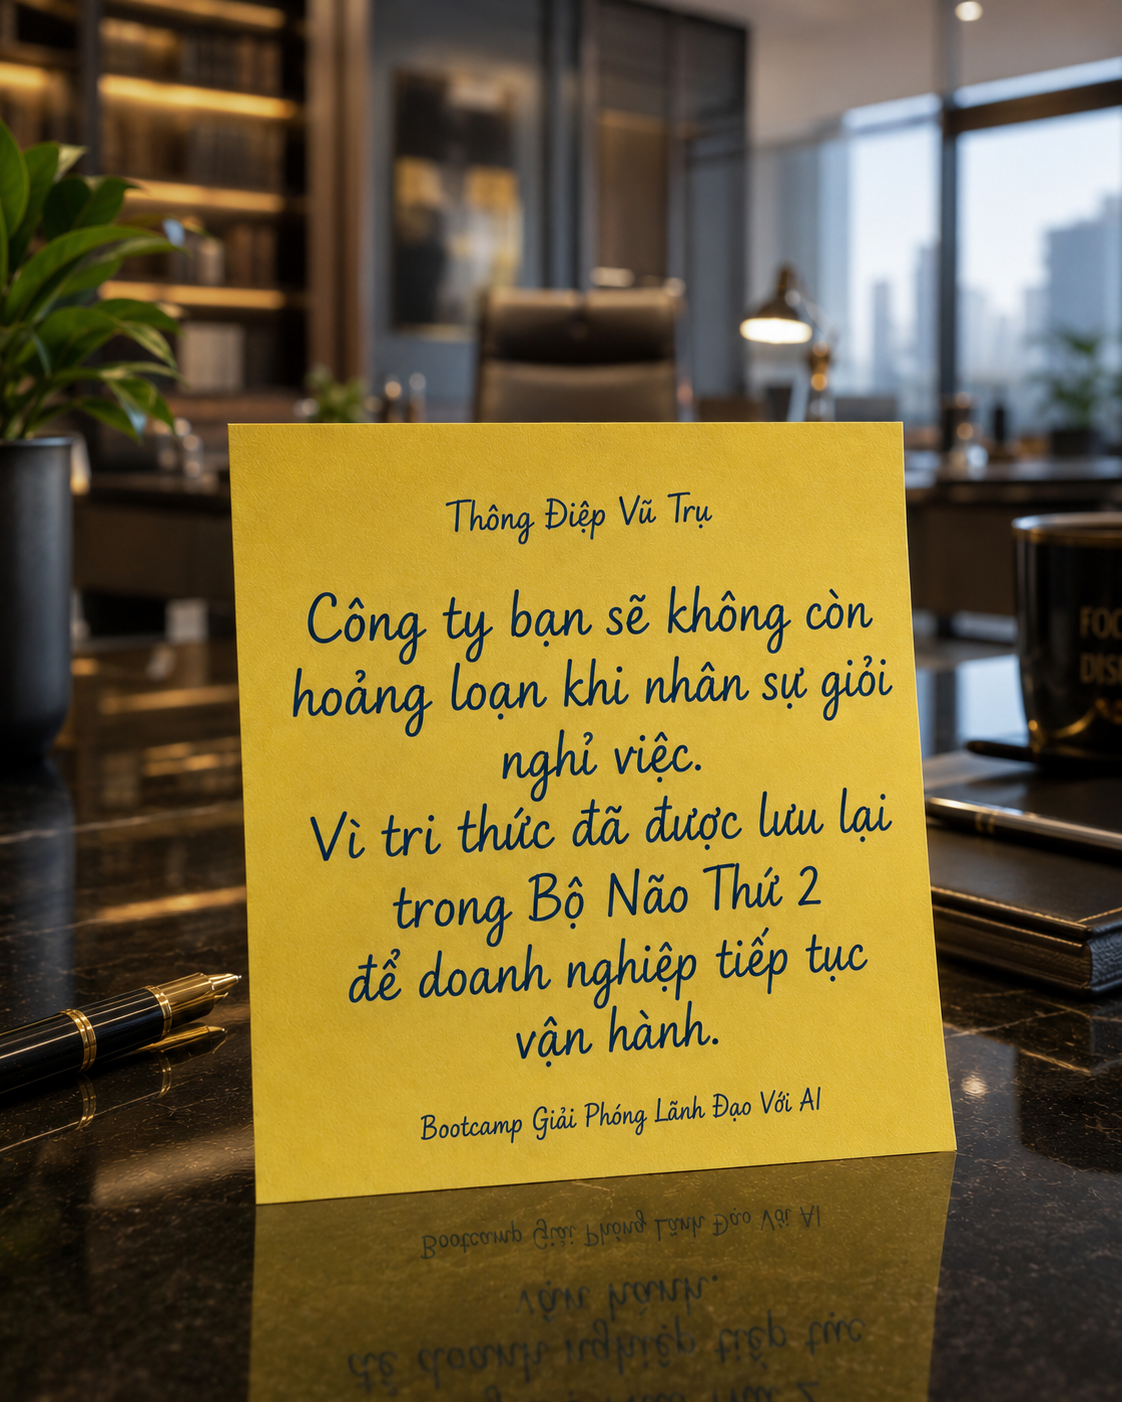 Thông Điệp Vũ Trụ
Công ty bạn sẽ không còn
hoảng loạn khi nhân sự giỏi
nghỉ việc.
Vì tri thức đã được lưu lại
trong Bộ Não Thứ 2
để doanh nghiệp tiếp tục
vận hành.
Bootcamp Giải Phóng Lãnh Đạo Với AI